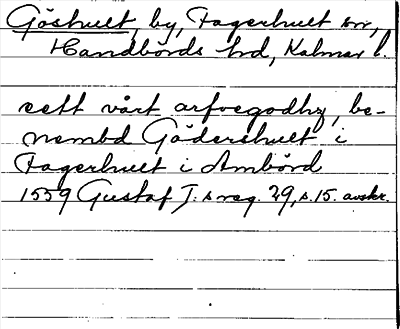 Göshult, by, Fagerhult sn,
Handbörds hd, Kalmar l.
ett vårt arfvegodhz, be-
nembd Gödershult i
Fagerhult i Ambörd
1559 Gustaf I:s reg. 29, s. 15. avskr.